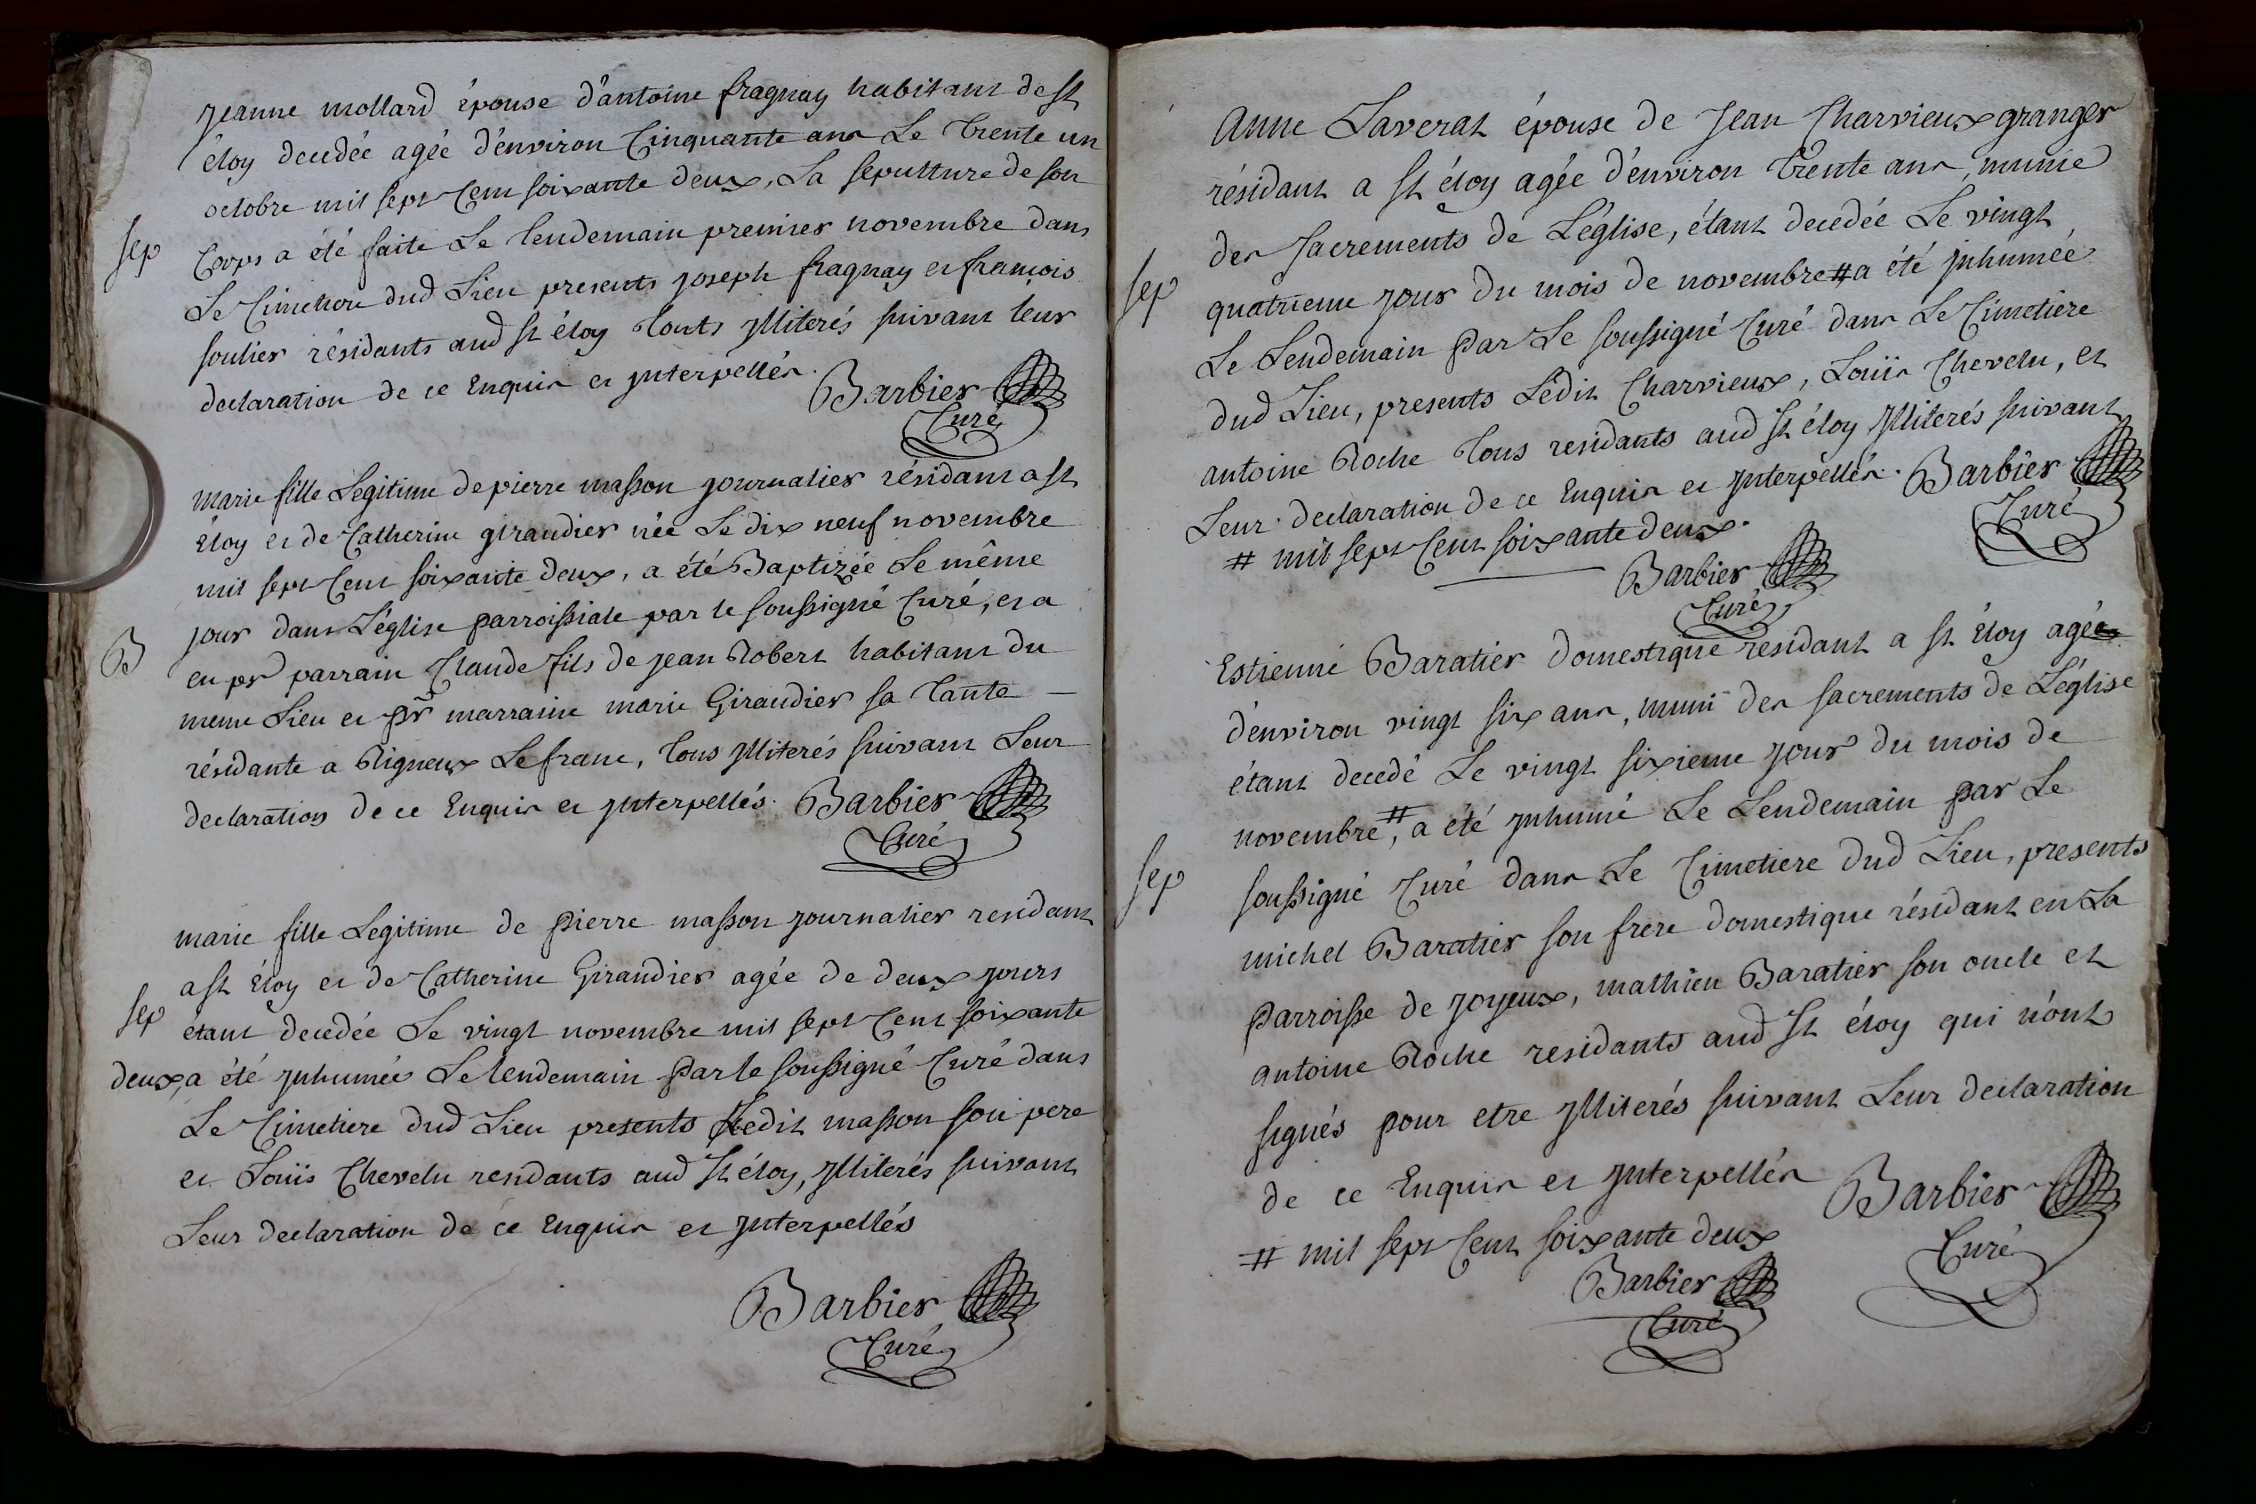 Jeanne mollard épouse d'antoine fragnay habitant de st
éloy decedée agée d'environ Cinquante ans Le trente un
octobre mil sept Cent soixante deux, La sepulture de son
sep
Corps a été faite Le lendemain premier novembre dans
Le Cimetiere dud Lieu presents joseph fragnay et françois
soulier résidants aud st éloy touts jlliterés suivant leur
declaration de ce Enquis et jnterpellés.
Barbier
Curé
marie fille Legitime de pierre masson journalier résidant a st
éloy et de Catherine giraudier née Le dix neuf novembre
mil sept Cent soixante deux, a été Baptizée Le même
jour dans L'église parroissiale par le soussigné Curé, et a
B
eu pr parrain Claude fils de jean Robert habitant du
meme Lieu et pr marraine marie Giraudier sa tante
résidante a Rigneux Lefranc, tous jlliterés suivant Leur
declaration de ce Enquis et jnterpellés.
Barbier
Curé
marie fille Legitime de pierre masson journalier residant
a st éloy et de Catherine Giraudier agée de deux jours
sep
étant decedée Le vingt novembre mil sept Cent soixante
deux, a été jnhumée Le lendemain par le soussigné Curé dans
Le Cimetiere dud Lieu presents Ledit masson son pere
et Louïs Chevelu residants aud st éloy, jlliterés suivant
Leur declaration de ce Enquis et jnterpellés
Barbier
Curé
Anne Laverat épouse de Jean Charvieux granger
résidant a st éloy agée d'environ trente ans, munie
des sacrements de L'église, étant decedée Le vingt
sep
quatrieme jour du mois de novembre # a été jnhumée
Le Lendemain par Le soussigné Curé dans Le Cimetiere
dud Lieu, presents Ledit Charvieux, Louïs Chevelu, et
antoine Roche tous residants aud st éloy jlliterés suivant
Leur declaration de ce Enquis et jnterpellés.
Barbier
Curé
# mil sept Cent soixante deux.
Barbier
Curé
Estienne Baratier domestique residant a st éloy agée
d'environ vingt six ans, muni des sacrements de L'église
étant decedé Le vingt sixieme jour du mois de
novembre #, a été jnhumé Le Lendemain par Le
sep
soussigné Curé dans Le Cimetiere dud Lieu, presents
michel Baratier son frere domestique résidant en La
parroisse de joyeux, mathieu Baratier son oncle et
antoine Roche residants aud st éloy qui n'ont
signés pour etre jlliterés suivant Leur declaration
de ce Enquis et jnterpellés
Barbier
Curé
# mil sept Cent soixante deux
Barbier
Curé